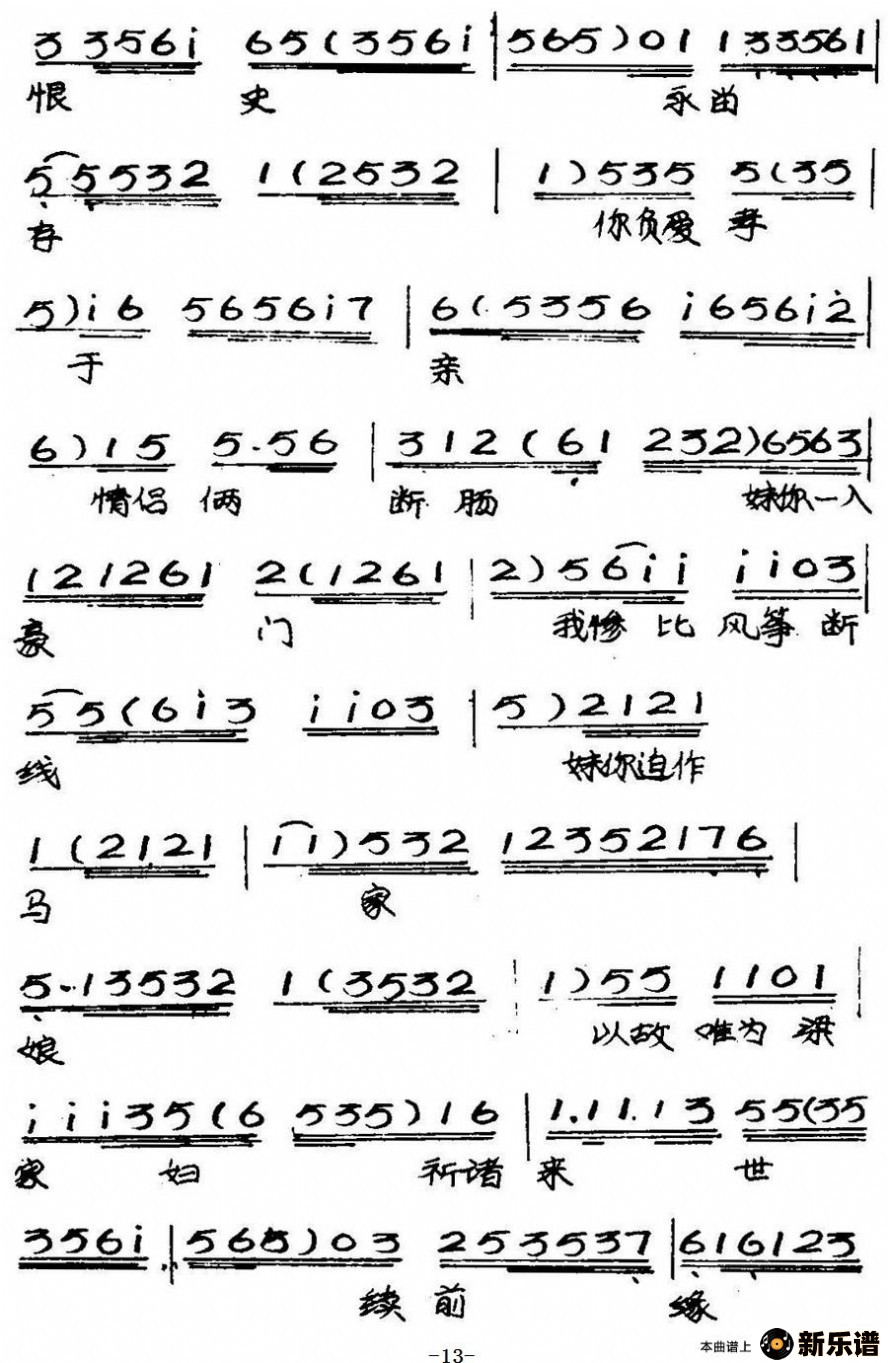 3 3 3 5 6 i 6 5 ( 3 5 6 i | 5 6 5 ) 0 1 1 3 3 5 6 1 |
恨 史 永留
5 5 5 3 2 1 ( 2 5 3 2 | 1 ) 5 3 5 5 ( 3 5 |
存 你负爱 孝
5 ) i 6 5 6 5 6 i 7 | 6 ( 5 3 5 6 i 6 5 6 i 2 |
于 亲
6 ) 1 5 5 . 5 6 | 3 1 2 ( 6 1 2 3 2 ) 6 5 6 3 |
情侣 俩 断 肠 妹你一入
1 2 1 2 6 1 2 ( 1 2 6 1 | 2 ) 5 6 i i i i 0 3 |
豪 门 我惨 比 风筝 断
5 5 ( 6 i 3 i i 0 3 | 5 ) 2 1 2 1
线 妹你迫作
1 ( 2 1 2 1 | 1 1 ) 5 3 2 1 2 3 5 2 1 7 6 |
马 家
5 . 1 3 5 3 2 1 ( 3 5 3 2 | 1 ) 5 5 1 1 0 1 |
娘 以故 唯为 梁
i i i 3 5 ( 6 5 3 5 ) 1 6 | 1 . 1 1 . 1 3 5 5 ( 3 5
家 妇 祈诸 来 世
3 5 6 i | 5 6 5 ) 0 3 2 5 3 5 3 7 | 6 1 6 1 2 3
续 前 缘
本曲谱上 新乐谱
-13-